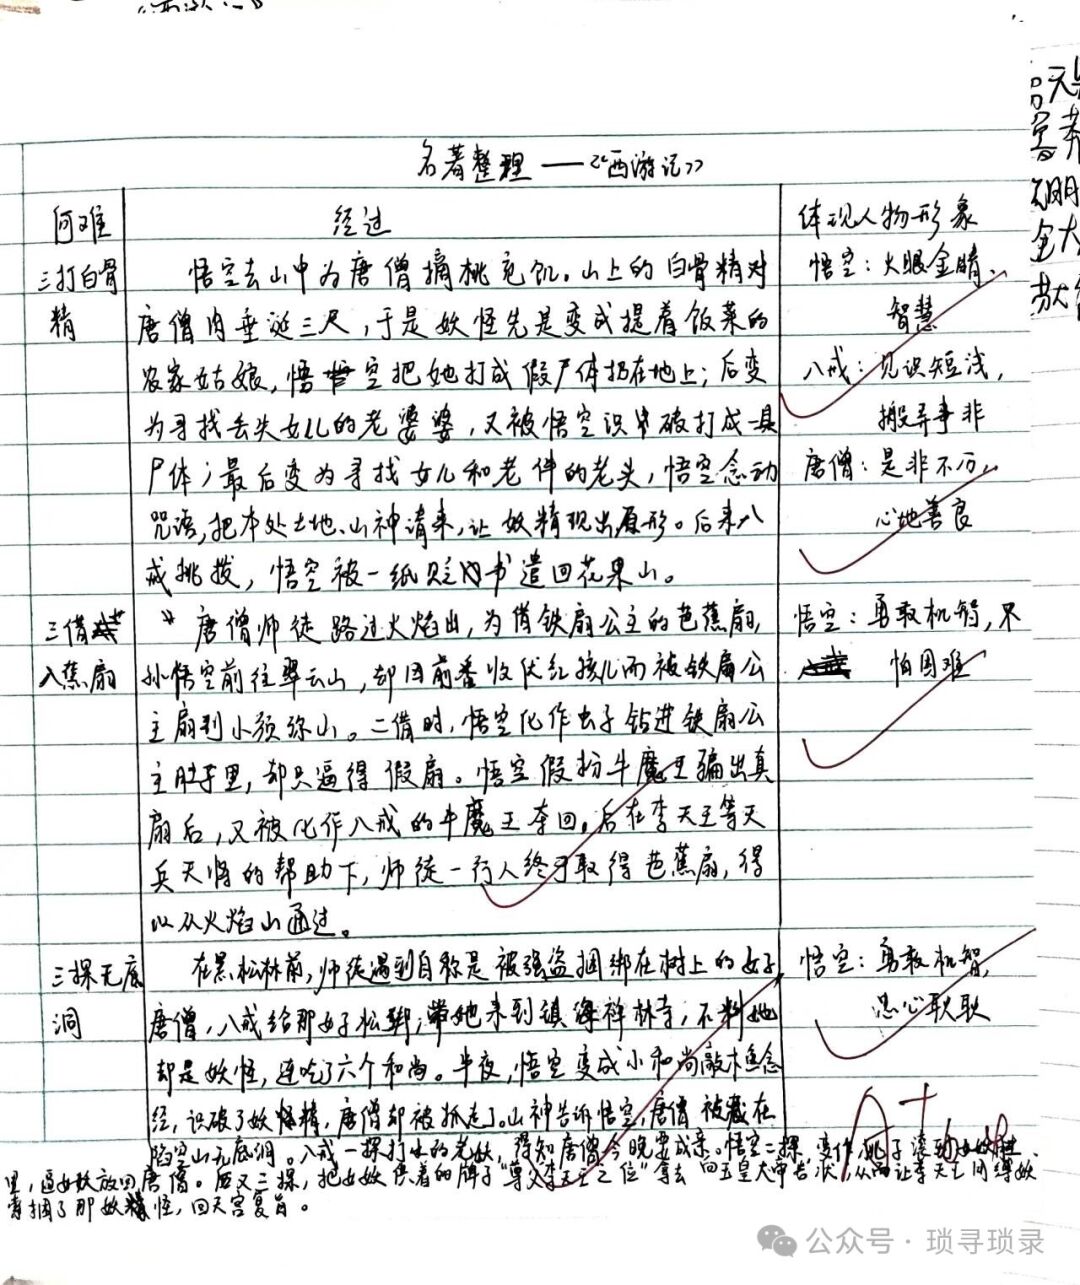 名著整理——《西游记》
何难 经过 体现人物形象
三打白骨精
悟空去山中为唐僧摘桃充饥。山上的白骨精对
唐僧肉垂涎三尺，于是妖怪先是变成提着饭菜的
农家姑娘，悟空把她打成假尸体扔在地上；后变
为寻找丢失女儿的老婆婆，又被悟空识破打成一具
尸体；最后变为寻找女儿和老伴的老头，悟空念动
咒语，把本处土地、山神请来，让妖精现出原形。后来八
戒挑拨，悟空被一纸贬书遣回花果山。
悟空：火眼金睛、
智慧
八戒：见识短浅，
搬弄事非
唐僧：是非不分，
心地善良
三借
八蕉扇
唐僧师徒路过火焰山，为借铁扇公主的芭蕉扇，
孙悟空前往翠云山，却因前番收伏红孩儿而被铁扇公
主扇到小须弥山。二借时，悟空化作虫子钻进铁扇公
主肚子里，却只逼得假扇。悟空假扮牛魔王骗出真
扇后，又被化作八戒的牛魔王夺回。后在李天王等天
兵天将的帮助下，师徒一行人终于取得芭蕉扇，得
以从火焰山通过。
悟空：勇敢机智，不
怕困难
三探无底
洞
在黑松林前，师徒遇到自称是被强盗捆绑在树上的女子
唐僧，八戒给那女子松绑，带她来到镇海禅林寺，不料她
却是妖怪，连吃了六个和尚。半夜，悟空变成小和尚敲木鱼念
经，识破了妖精，唐僧却被抓走了。山神告诉悟空，唐僧被藏在
陷空山无底洞。八戒一探打水的老妖，得知唐僧今晚要成亲。悟空二探，变作桃子滚到女妖肚
里，逼女妖放回唐僧。后又三探，把女妖供着的牌子"尊父李天王之位"拿去向玉皇大帝告状，从而让李天王
捆了那妖精怪，回天宫复旨。
悟空：勇敢机智，
忠心耿耿
A+
公众号·琐寻琐录